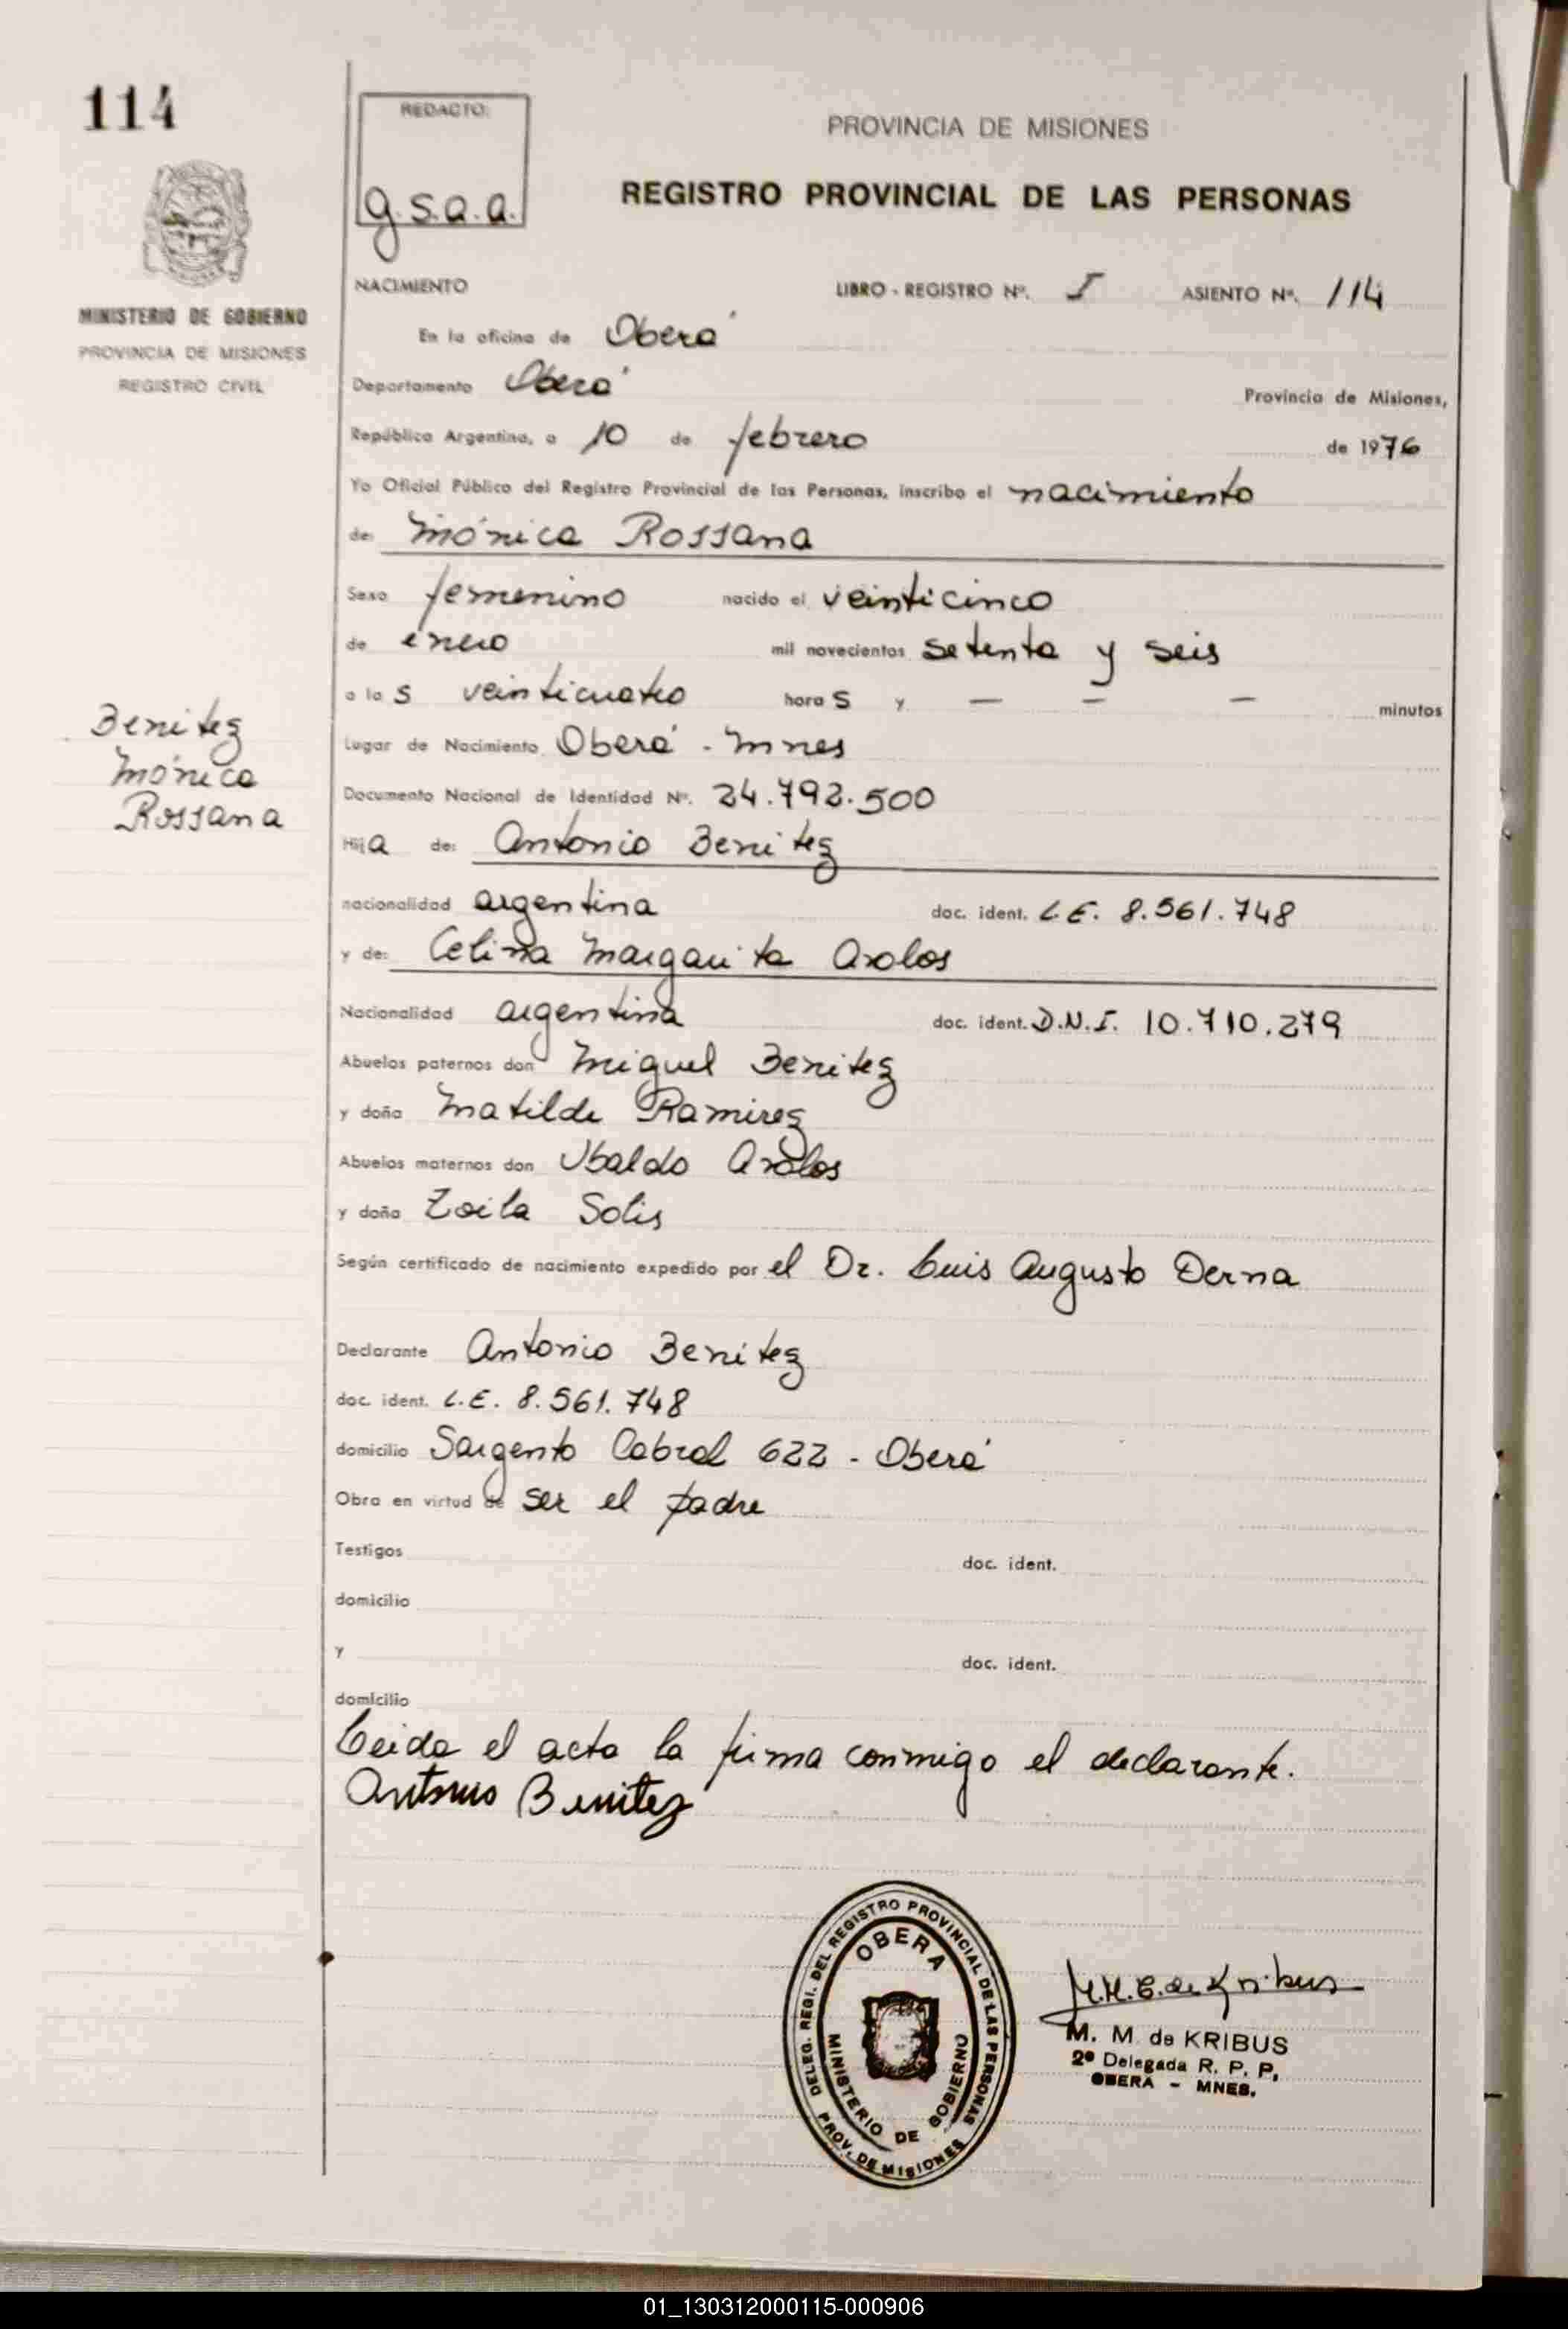 114
REDACTO:
g.s.a.a.
PROVINCIA DE MISIONES
REGISTRO PROVINCIAL DE LAS PERSONAS
MINISTERIO DE GOBIERNO
PROVINCIA DE MISIONES
REGISTRO CIVIL
NACIMIENTO LIBRO - REGISTRO Nº. I ASIENTO Nº. 114
En la oficina de Oberá
Departamento Oberá Provincia de Misiones,
República Argentina, a 10 de febrero de 1976
Yo Oficial Público del Registro Provincial de las Personas, inscribo el nacimiento
de: Mónica Rossana
Sexo femenino nacido el veinticinco
de enero mil novecientos setenta y seis
a las veinticuatro horas y — — — minutos
Benitez
Mónica
Rossana
Lugar de Nacimiento Oberá - Mnes
Documento Nacional de Identidad Nº. 24.792.500
Hija de: Antonio Benitez
nacionalidad argentina doc. ident. L.E. 8.561.748
y de: Celina Margarita
Nacionalidad argentina doc. ident. D.N.I. 10.710.279
Abuelos paternos don Miguel Benitez
y doña Matilde Ramirez
Abuelos maternos don Ubaldo
y doña Zoila Solis
Según certificado de nacimiento expedido por el Dr. Luis Augusto Derna
Declarante Antonio Benitez
doc. ident. L.E. 8.561.748
domicilio Sargento Cabral 622 - Oberá
Obra en virtud de ser el padre
Testigos doc. ident.
domicilio
y doc. ident.
domicilio
Leida el acta la firma conmigo el declarante.
Antonio Benitez
DELEG. REGI. DEL REGISTRO PROVINCIAL DE LAS PERSONAS
OBERA
MINISTERIO DE GOBIERNO
PROV. DE MISIONES
M.M.E. de Kribus
M. M. de KRIBUS
2ª Delegada R. P. P.
OBERA - MNES.
01_130312000115-000906